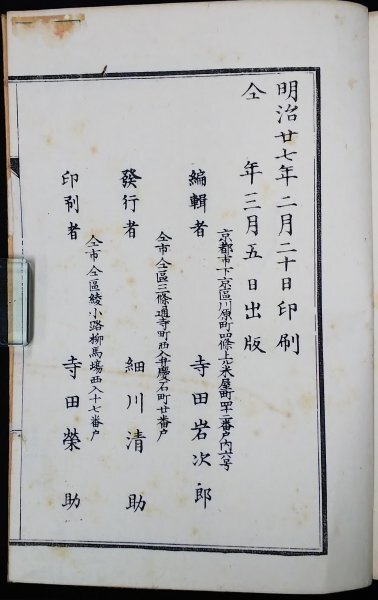 明治廿七年二月二十日印刷
仝　年三月五日出版
京都市下京區川原町四條上ル米屋町四十二番戸内六号
編輯者　寺田岩次郎
仝市仝區三條通寺町西入弁慶石町廿番戸
發行者　細川清助
仝市仝區綾小路柳馬塲西入十七番戸
印刷者　寺田榮助